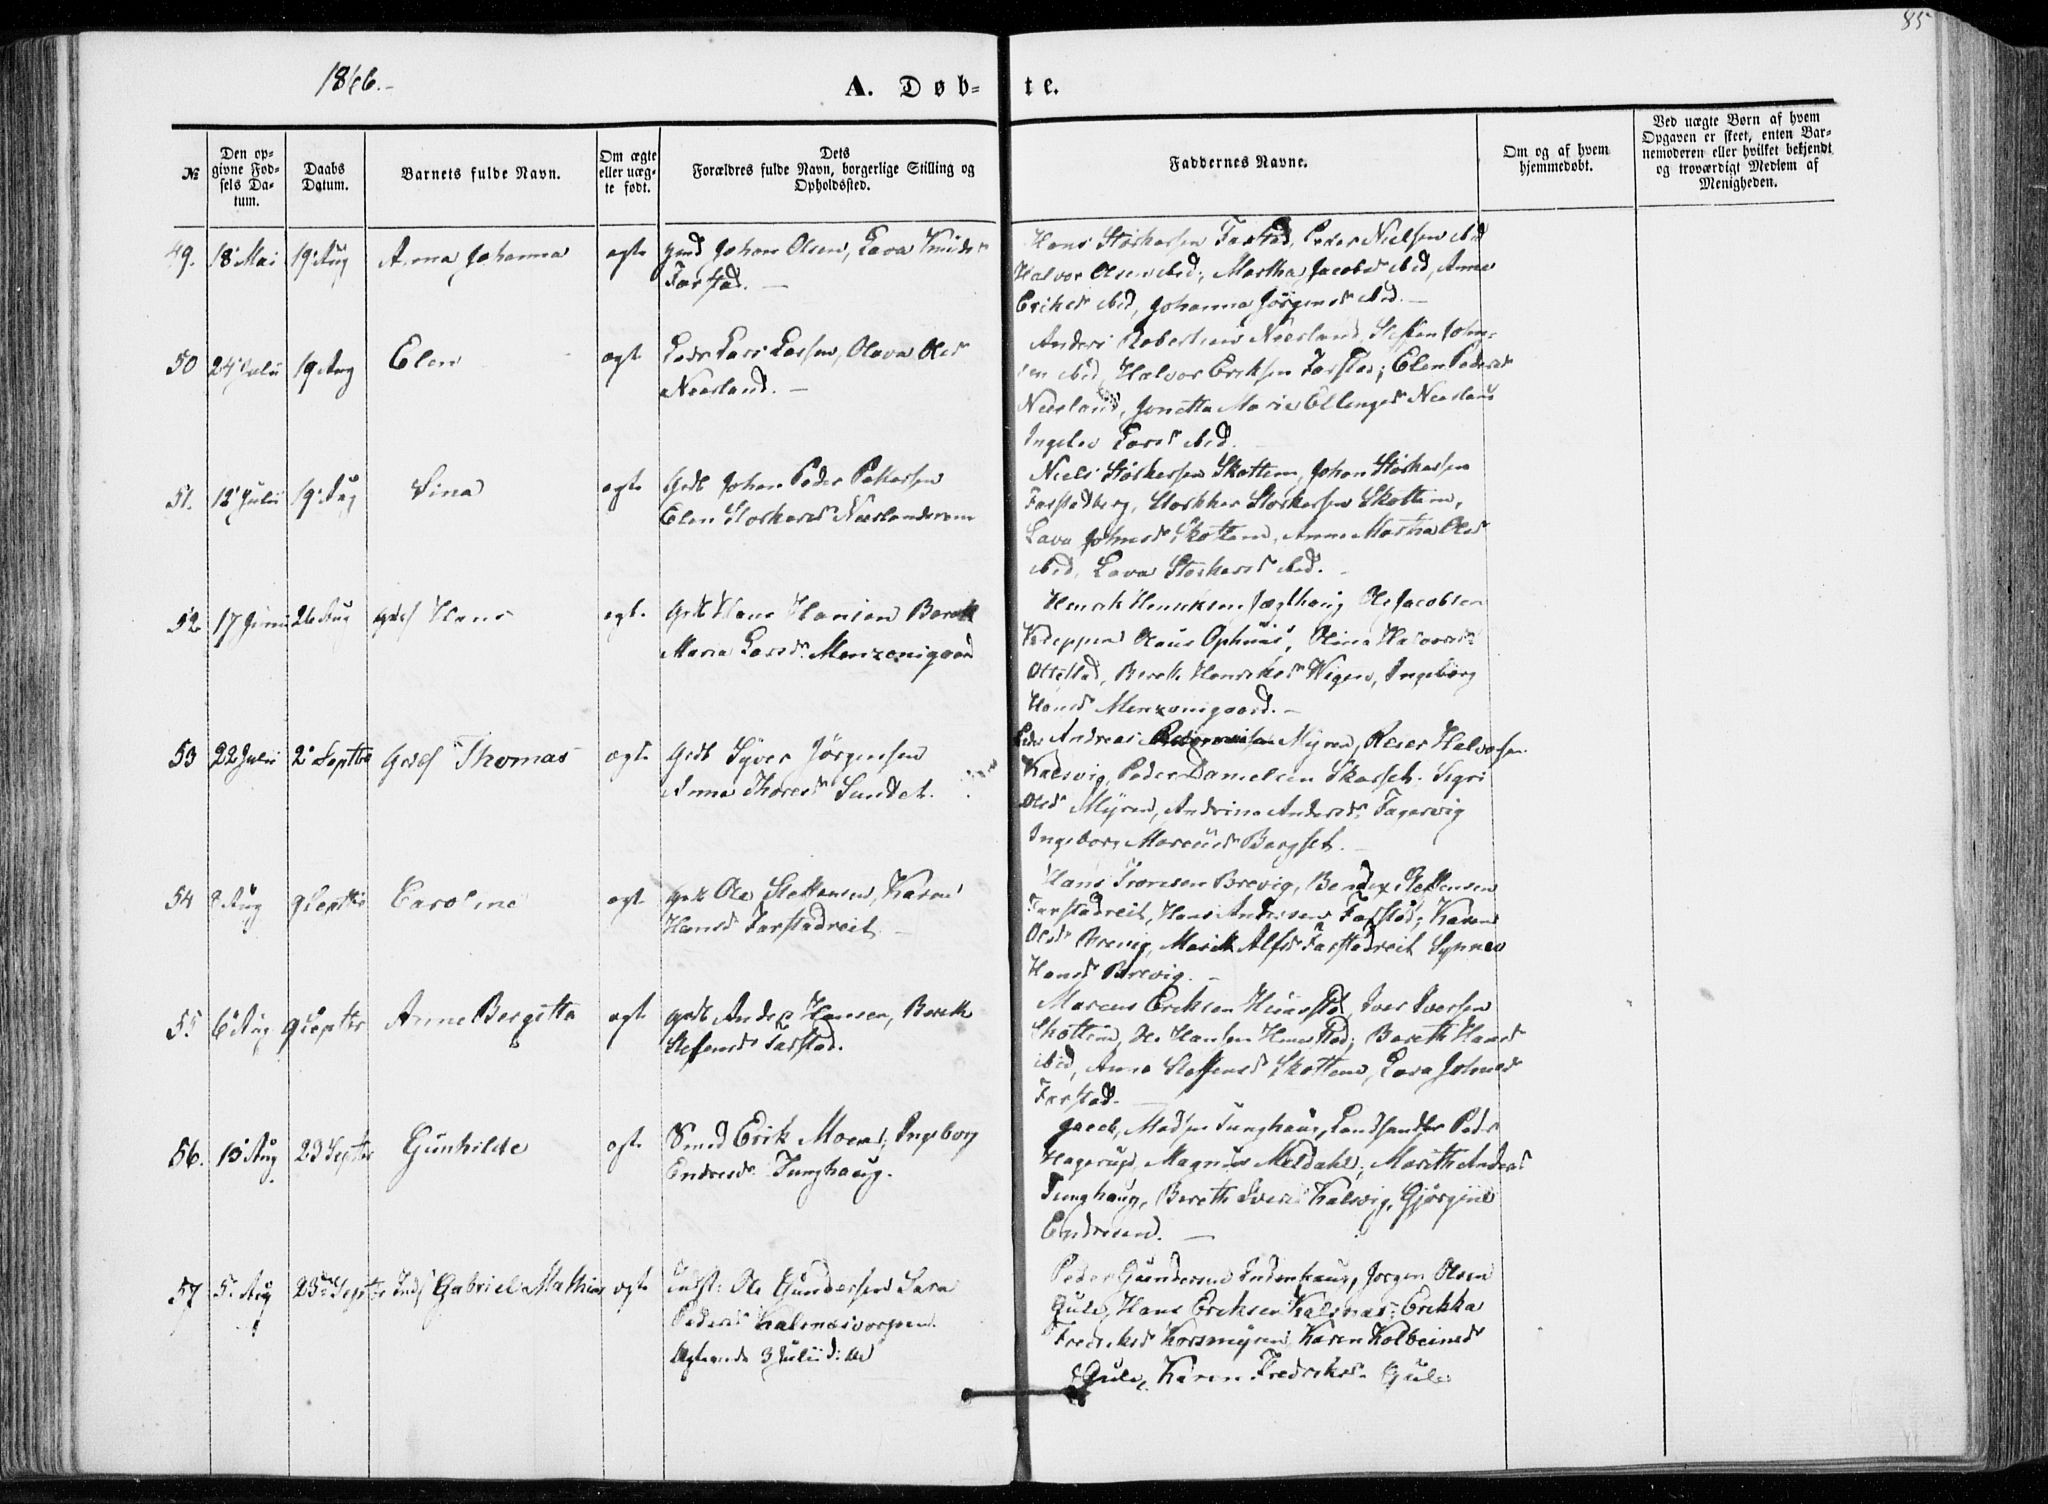 85
1866.-
A. Døb-
te.
№
Den op-
givne Fød-
sels Da-
tum.
Daabs
Datum.
Barnets fulde Navn.
Om ægte
eller uæg-
te født.
Dets
Forældres fulde Navn, borgerlige Stilling og
Opholdssted.
Faddernes Navne.
Om og af hvem
hjemmedøbt.
Ved uægte Børn af hvem
Opgaven er skeet, enten Bar-
nemoderen eller hvilket bekjendt
og troværdigt Medlem af
Menigheden.
49. 18 Mai 19 Aug Anna Johanna ægte
Johan Olsen, Lava Knuds
Farstad. -
Hans Størkersen Farstad, Peder Nielsen ibid
Halvor Olsen ibid; Martha Jacobsd ibid, Anne
Eriksd ibid, Johanna Jørgensd ibid. -
50 24 Julii 19 Aug Elen ægt
Lars Larsen, Olava Olsd
Neerland. -
Anders Robertsen Neerland, Steffen John-
sen ibid, Halvor Eriksen Farstad; Elen Pedersd
Neerland, Jonetta Maria Ellingsd Neerland
Ingelev Larsd ibid.
51. 12 Julii 19 Aug Sina ægte
Johan Peder Pettersen
Elen Storkersd Neerlandsrem
Niels Størkersen Skottem, Johan Størkersen
Farstadberg, Storkker Storkersen Skottem,
Lava Johnsd Skottem, Anne Martha Olsd
ibid, Lava Størkersd ibid. -
52 17 Juni 26 Aug Hans ægte
Hans Hansen Bereth
Maria Larsd. Menzonigaard
Henrik Henriksen Ole Jacobsen
Olaus Ophuus, Olina Halvorsd
Ottestad, Bereth Henriksd Wigen, Ingeborg
Hansd Menzonigaard. -
53 22 Julii 2 Septbr Thomas ægte
Syver Jørgensen
Anna Thoresd Sundet.
Andreas Myren, Peter Halvorsen
Kalsvig, Peder Danielsen Skarset. Sigri
Olsd Myren, Andrina Andersd. Fagervig
Ingeborg Marcusd Bergset.
54 8 Aug 9 Septbr Caroline ægt
Ole Steffensen, Karen
Hansd Farstadreit -
Hans Iversen Brevig, Bendix Steffensen
Farstadreit, Hans Andersen Farstad; Karen
Olsd Brevig, Marith Alfsd Farstadreit Synnev
Hansd Brevig. -
55 6 Aug 9 Septbr Anne Bergitta ægt
Anders Hansen, Bereth
Steffensd Farstad.
Marcus Eriksen Hustad, Iver Iversen
Skottem, Ole Hansen Hustad; Bereth Hansd
ibid, Anne Steffensd Skottem, Lava Johnsd
Farstad. -
56. 15 Aug 23 Septbr Gunhilde ægte
Smed Erik Moen, Ingeborg
Endresd Tunghaug.
Jacob Madsen Tunghaug, Landhandler Peder
Hagerup, Magnus Meldahl; Marith Andersd
Tunghaug, Bereth Iversd Kalsvig, Gjørgine
Endresen. -
57 5 Aug 23 Septbr Gabriel Mathias ægte
Indst: Ole Gundersen Sara
Pedersd Kalsnæsvorpen.
3 Julii
Peder Gundersen Indenhaug, Jørgen Olsen
Gule, Hans Eriksen Kalsnæs: Erikka
Fredriksd Korsmyren, Karen Kolbeinsd
Gule, Karen Fredriksd. Gule